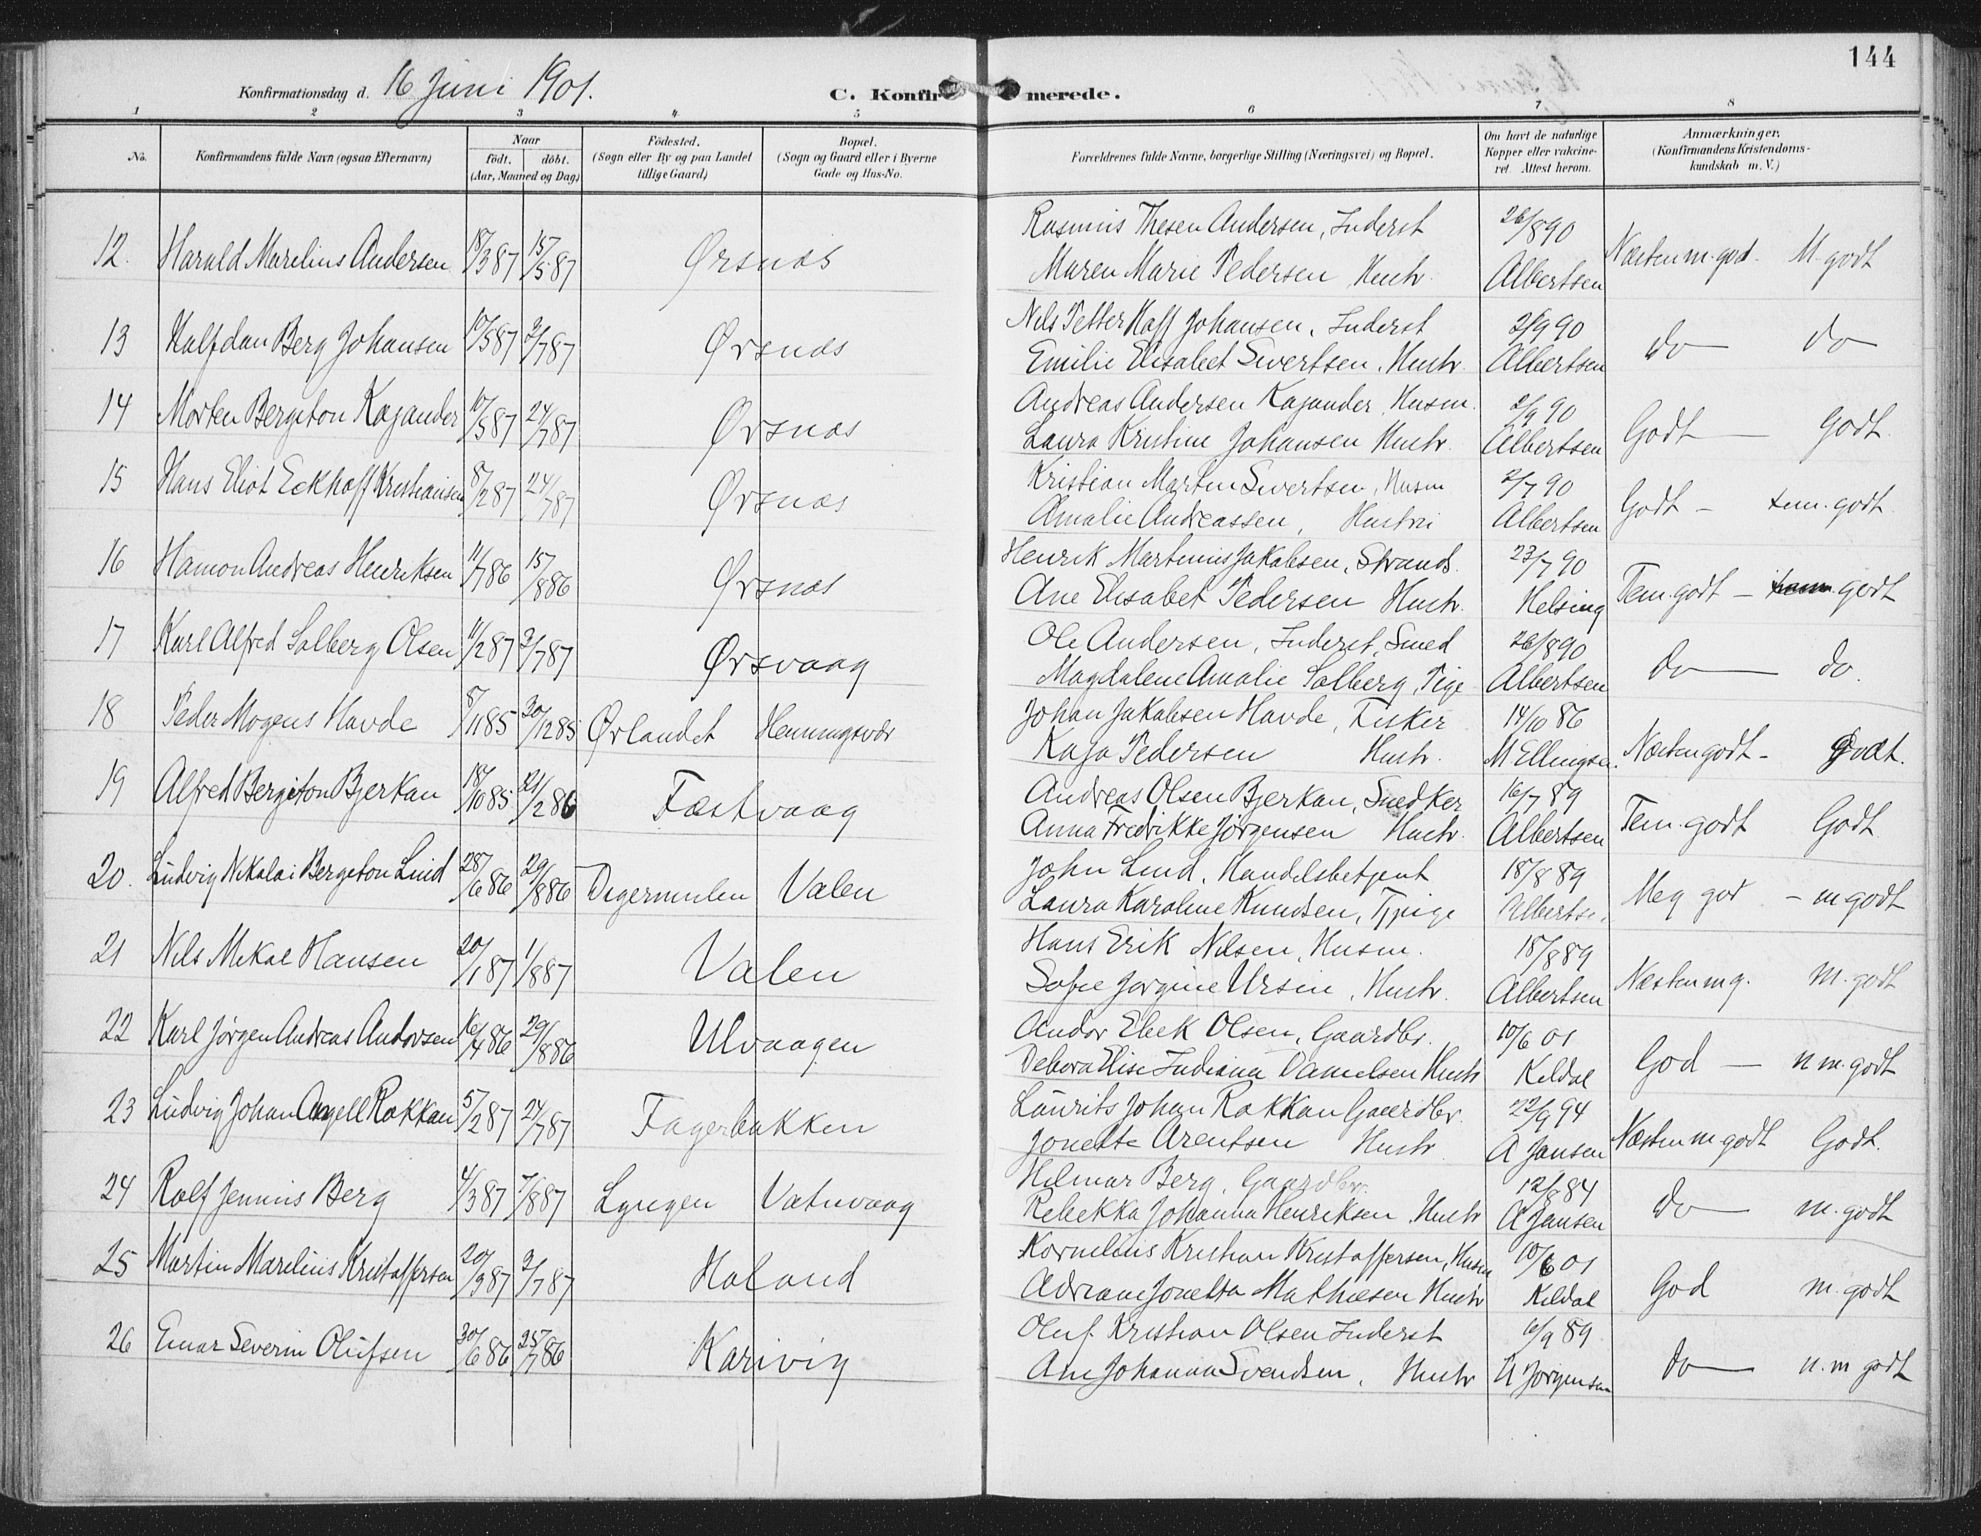 144
Konfirmationsdag d. 16 Juni 1901.
C. Konfirmerede.
1 2 3 4 5 6 7 8
No. Konfirmandens fulde Navn (ogsaa Efternavn) Naar födt. döbt. (Aar, Maaned og Dag) Födested. (Sogn eller By og paa Landet tillige Gaard) Bopæl. (Sogn og Gaard eller i Byerne Gade og Hus-No.
Forældrenes fulde Navne, borgerlige Stilling (Næringsvei) og Bopæl. Om havt de naturlige Kopper eller vakcineret. Attest herom. Anmærkninger. (Konfirmandens Kristendomskundskab m. V.)
12. Harald Marelius Andersen 18/3 87 15/5 87 Ørsnæs Rasmus Thesen Andersen, Inderst 26/8 90
Maren Marie Pedersen, Hustr. Albertsen Næsten m. god. M. godt
13 Halfdan Berg Johansen 10/5 87 3/7 87 Ørsnæs Nils Petter Hoff Johansen, Inderst 2/9 90
Emilie Elisabet Sivertsen, Hustr. Albertsen do do
14 Morten Bergeton Kajander 10/5 87 24/7 87 Ørsnæs Andreas Andersen Kajander, Husm. 2/9 90
Laura Kristine Johansen Hustr. Albertsen Godt godt
15 Hans Eliot Eckhoff Kristiansen 8/2 87 24/7 87 Ørsnæs Kristian Martin Sivertsen, Husm 2/7 90
Amalie Andreassen, Hustru Albertsen Godt - tem. godt
16 Hamon Andreas Henriksen 11/7 86 15/8 86 Ørsnæs Henrik Martinus Jakobsen, Strands. 23/7 90
Ane Elisabet Pedersen Hustr. Helsing Tem. godt - godt
17 Karl Alfred Solberg Olsen 11/2 87 3/7 87 Ørsvaag Ole Andersen, Inderst, Smed 26/8 90
Magdalene Amalie Solberg, Pige Albertsen do do.
18 Peder Mogens Havde 8/11 85 30/12 85 Ørlandet Henningsvær Johan Jakobsen Havde, Fisker 14/10 86
Kaja Pedersen Hustr. M Ellingsen. Næsten godt - Godt.
19 Alfred Bergeton Bjerkan 18/10 85 21/2 86 Festvaag Andreas Olsen Bjerkan, Snedker 16/7 89
Anna Fredrikke Jørgensen Hustr. Albertsen Tem. godt Godt
20. Ludvig Nikolai Bergeton Lind 28/6 86 29/8 86 Digermulen Valen John Lind, Handelsbetjent 18/8 89
Laura Karoline Knudsen, Tjpige Albertse. Meg god - m godt
21 Nils Mikal Hansen 20/1 87 1/8 87 Valen Hans Erik Nilsen, Husm. 18/8 89
Sofie Jørgine Ursin, Hustr. Albertsen Næsten m g. M. godt
22 Karl Jørgen Andreas Andorsen 16/4 86 29/8 86 Ulvaagen Andor Ebek Olsen, Gaardbr. 10/6 01
Debora Elise Indiana Danielsen Hustr Kildal God - n m. godt
23 Ludvig Johan Angell Rokkan 5/2 87 24/7 87 Fagerbakken Laurits Johan Rokkan Gaardbr. 22/9 94
Jonette Arentsen Hustr A Jansen Næsten m godt Godt.
24 Rolf Jennius Berg 4/3 87 7/8 87 Lyngen Vatnvaag Hilmar Berg, Gaardbr. 12/8 84
Rebekka Johanna Henriksen, Hustr A Jansen do m. godt
25 Martin Marelius Kristoffersen 20/3 87 3/7 87 Holand Kornelius Kristian Kristoffersen, Husm 10/6 01
Adriane Jonetta Mathiesen Hustr Kildal God m. godt
26 Einar Severin Olufsen 30/6 86 25/7 86 Karivig Oluf Kristian Olsen Inderst 6/9 89
Ane Johanna Svendsen, Hustr N Jørgensen do n. m godt